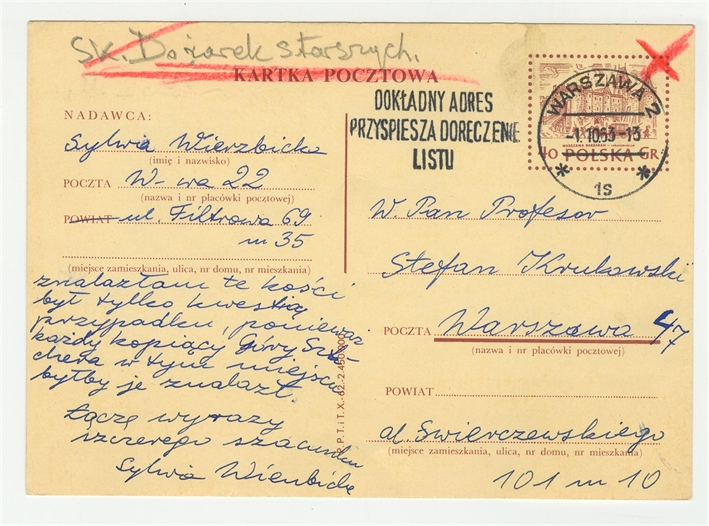 SK. Dożarek starszych.
KARTKA POCZTOWA
DOKŁADNY ADRES
PRZYSPIESZA DORĘCZENIE
LISTU
WARSZAWA 2
-1.1053-13
1s
40 POLSKA GR.
NADAWCA:
Sylwia Wierzbicka
(imię i nazwisko)
POCZTA W-wa 22
(nazwa i nr placówki pocztowej)
POWIAT ul. Filtrowa 69
m 35
(miejsce zamieszkania, ulica, nr domu, nr mieszkania)
znalazłam te kości
był tylko kwestią
przypadku, ponieważ
każdy kopiący Góry Szla-
chera w tym miejscu
byłby je znalazł.
Łączę wyrazy
szczerego szacunku
Sylwia Wierzbicka
W. Pan Profesor
Stefan Krukowski
POCZTA Warszawa 47
(nazwa i nr placówki pocztowej)
POWIAT
al. Swierczewskiego
(miejsce zamieszkania, ulica, nr domu, nr mieszkania)
101 m 10